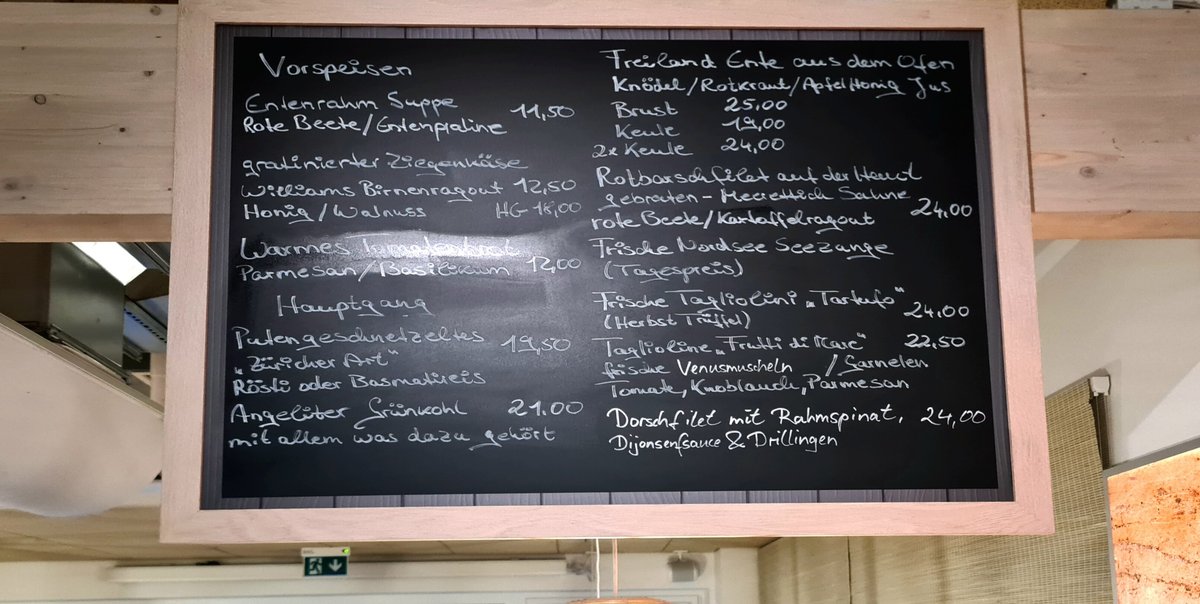 Vorspeisen
Entenrahm Suppe
Rote Beete/Entenpraline 11,50
gratinierter Ziegenkäse
Williams Birnenragout 12,50
Honig/Walnuss HG-18,00
Warmes
Parmesan/Basilikum 12,00
Hauptgang
Putengeschnetzeltes
"Züricher Art" 19,50
Rösti oder Basmatireis
Angelüter Grünkohl 21.00
mit allem was dazu gehört
Freiland Ente aus dem Ofen
Knödel/Rotkraut/Apfel Honig Jus
Brust 25,00
Keule 19,00
2x Keule 24,00
Rotbarschfilet auf der Haut
gebraten-Meerettich Sahne
rote Beete/Kartoffelragout 24,00
Frische Nordsee Seezunge
(Tagespreis)
Frische Tagliolini "Tartufo"
(Herbst Trüffel) 24,00
Taglioline "Frutti di Mare" 22,50
frische Venusmuscheln / Garnelen
Tomate, Knoblauch, Parmesan
Dorschfilet mit Rahmspinat, 24,00
Dijonsenfsauce & Drillingen